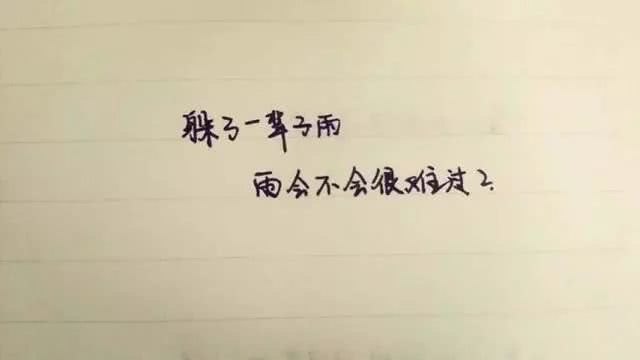 躲了一辈子雨
雨会不会很难过?